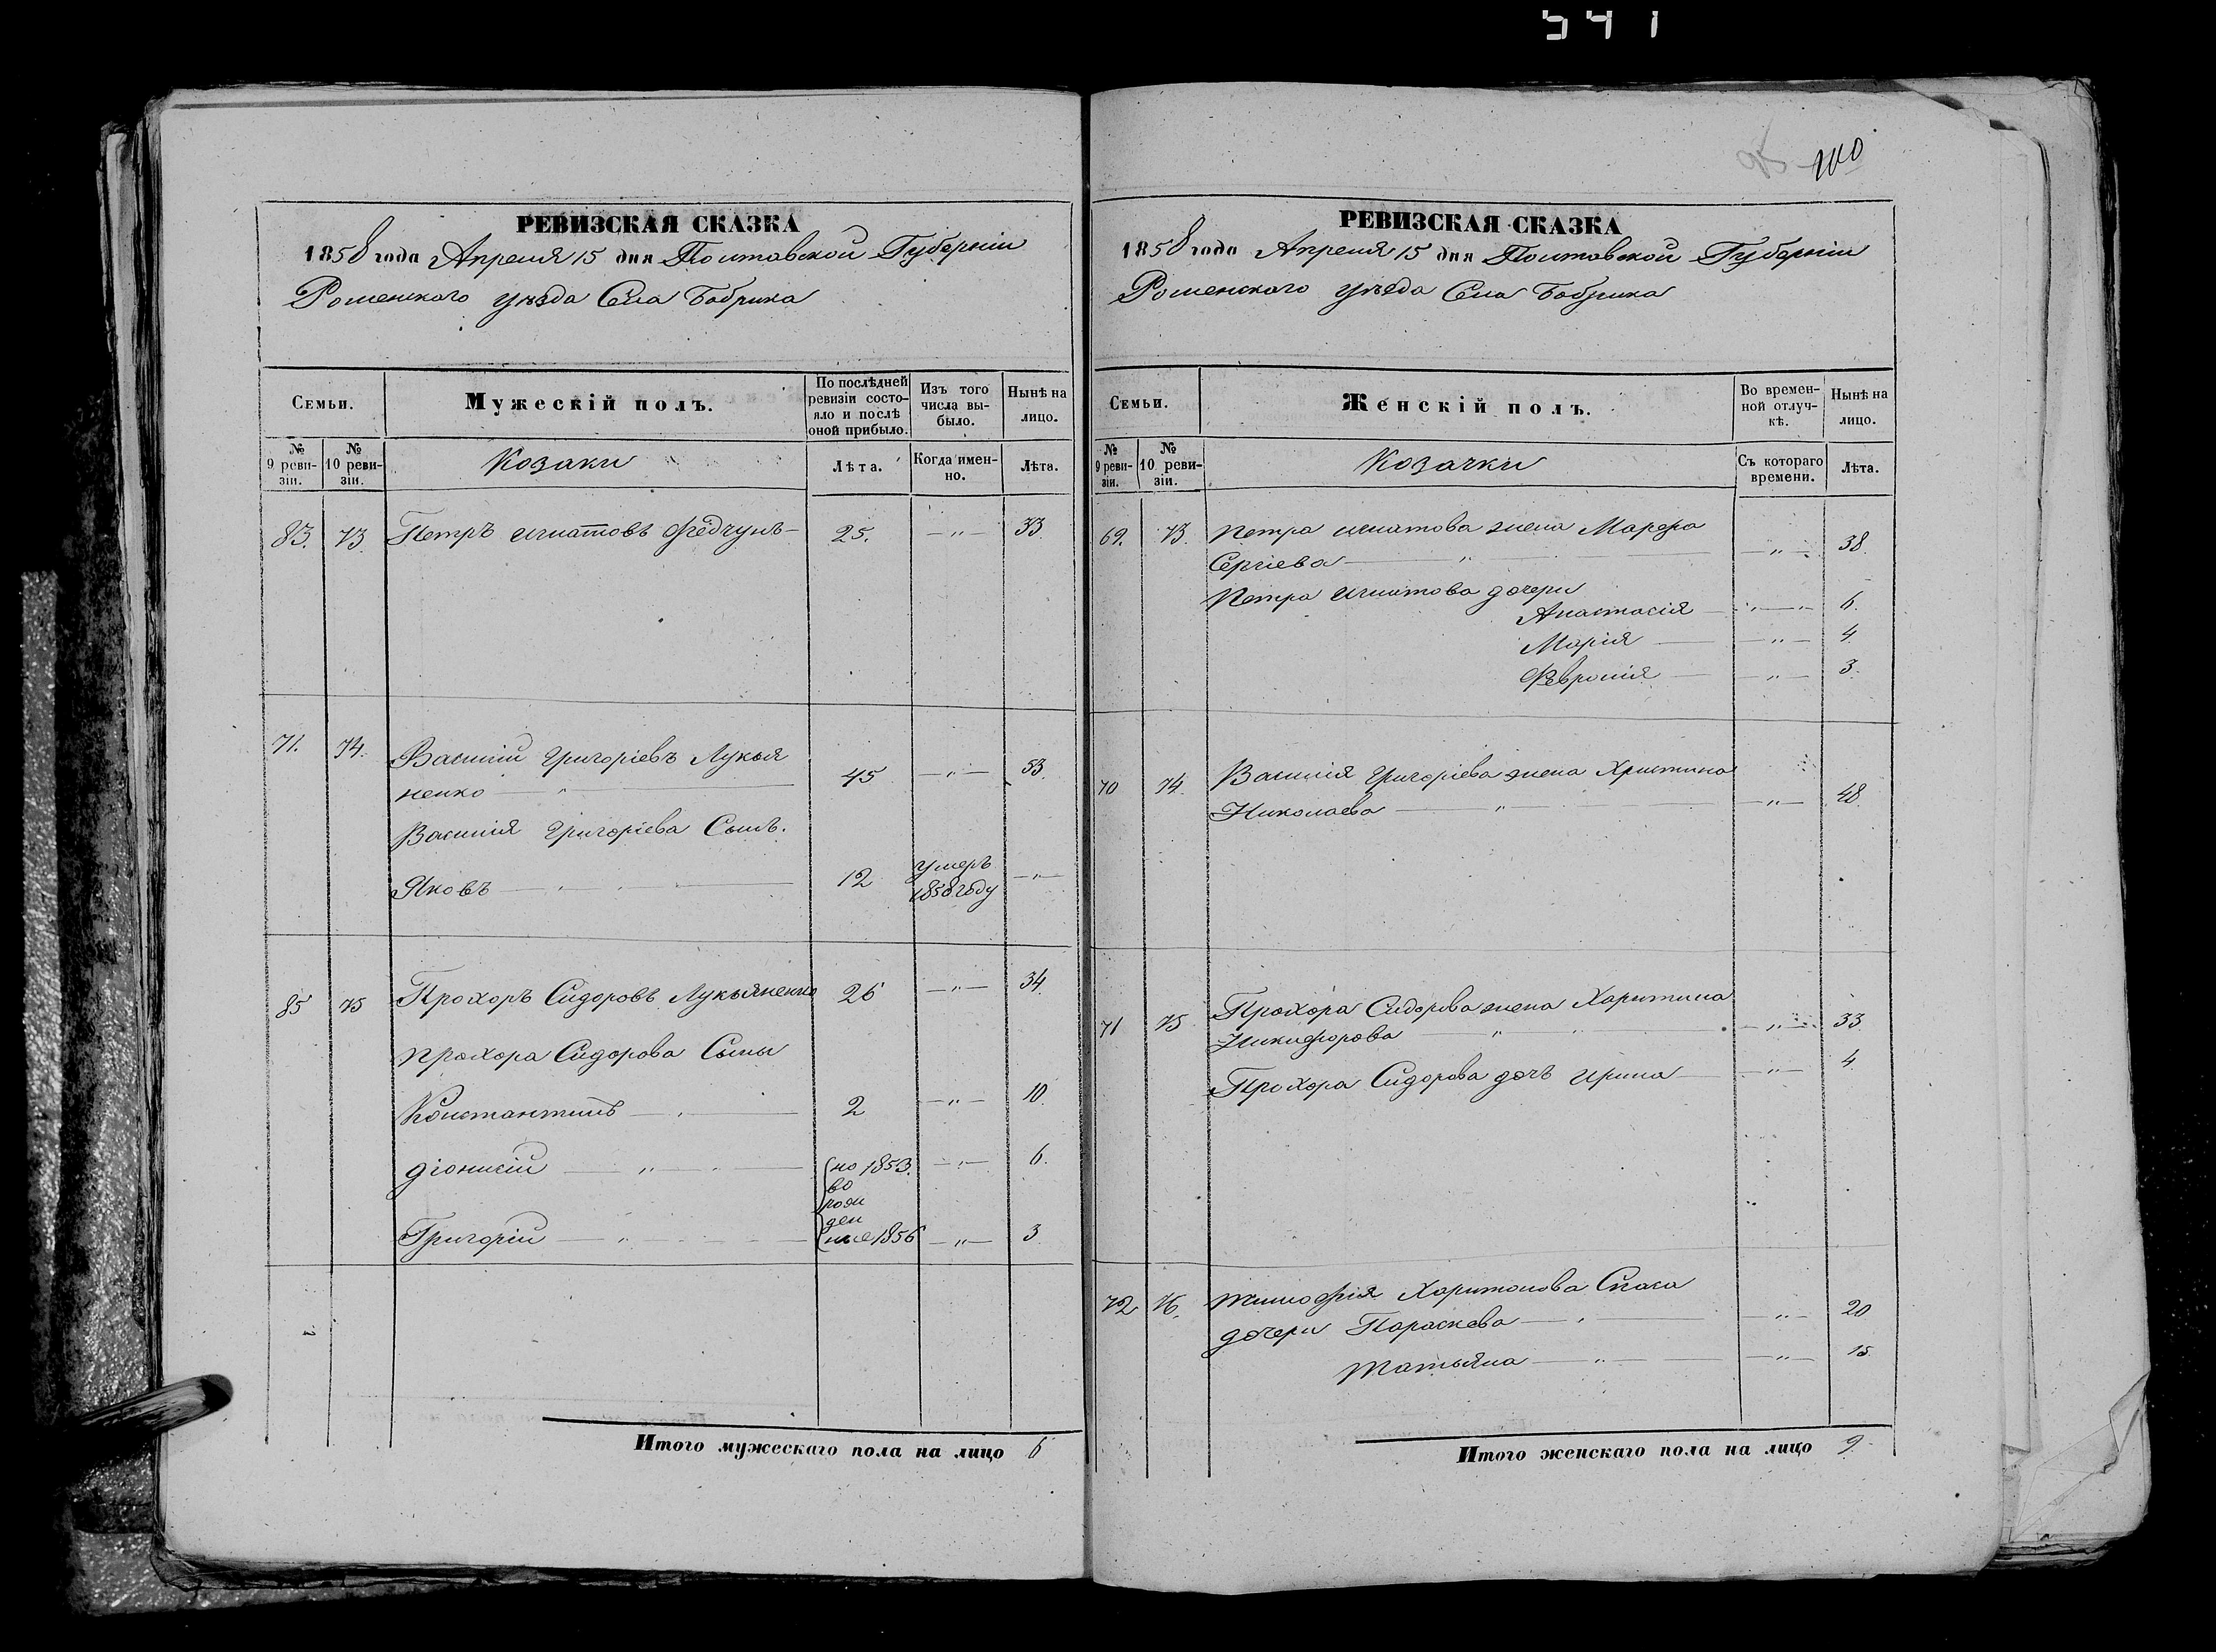 541
95 100
РЕВИЗСКАЯ СКАЗКА
1858 года Апреля 15 дня Полтавской Губерніи
Роменского уѣзда Села Бобрика
Семьи.
Мужескій полъ.
По послѣдней ревизіи состояло и послѣ оной прибыло.
Изъ того числа выбыло.
Нынѣ на лицо.
№ 9 ревизіи.
№ 10 ревизіи.
Козаки
Лѣта.
Когда именно.
Лѣта.
83. 73. Петръ Игнатовъ Федчунъ 25. — " — 33.
71. 74. Василій Григоріевъ Лукья
ненко — " — 45 — " — 53.
Василія Григоріева Сынъ.
Яковъ — " — 12 умеръ 1858 году — " —
85 75 Прохоръ Сидоровъ Лукьяненко 26 — " — 34.
Прохора Сидорова Сыны
Константинъ — " — 2 — " — 10.
Діонисій — " — но 1853. — " — 6.
во
рож
ден
Григорій — " — ные 1856 — " — 3
Итого мужескаго пола на лицо 6
РЕВИЗСКАЯ СКАЗКА
1858 года Апреля 15 дня Полтавской Губерніи
Роменского уѣзда Села Бобрика
Семьи.
Женскій полъ.
Во временной отлучкѣ.
Нынѣ на лицо.
№ 9 ревизіи.
№ 10 ревизіи.
Козачки
Съ котораго времени.
Лѣта.
69. 73. Петра Игнатова жена Марфа
Сергіева — " — — " — 38.
Петра Игнатова дочери
Анастасія — " — 6.
Марія — " — 4.
Февронія — " — 3.
70 74. Василія Григоріева жена Христина
Николаева — " — — " — 48.
71 75 Прохора Сидорова жена Харитина
Никифорова " " — " — 33.
Прохора Сидорова дочь Ирина — " — 4.
72 76. Тимофія Харитонова Спаса
дочери Параскева — " — — " — 20
Татьяна — " — — " — 15.
Итого женскаго пола на лицо 9.